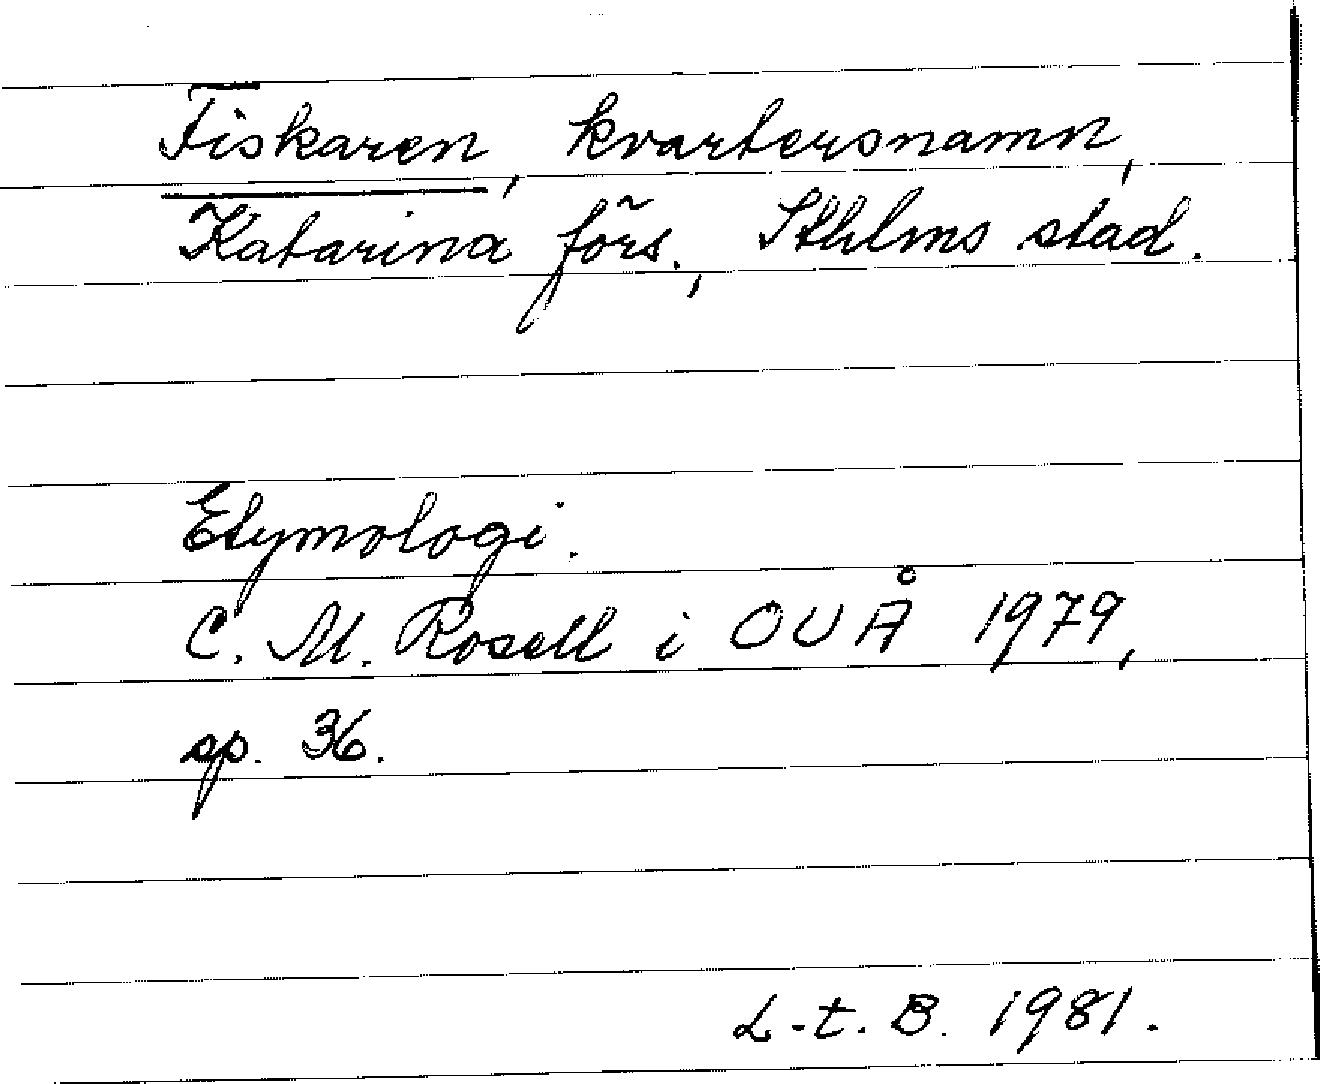 Fiskaren, kvartersnamn,
Katarina förs., Sthlms stad.
Etymologi.
C. M. Rosell i OUÅ 1979,
sp. 36.
L-t. B. 1981.